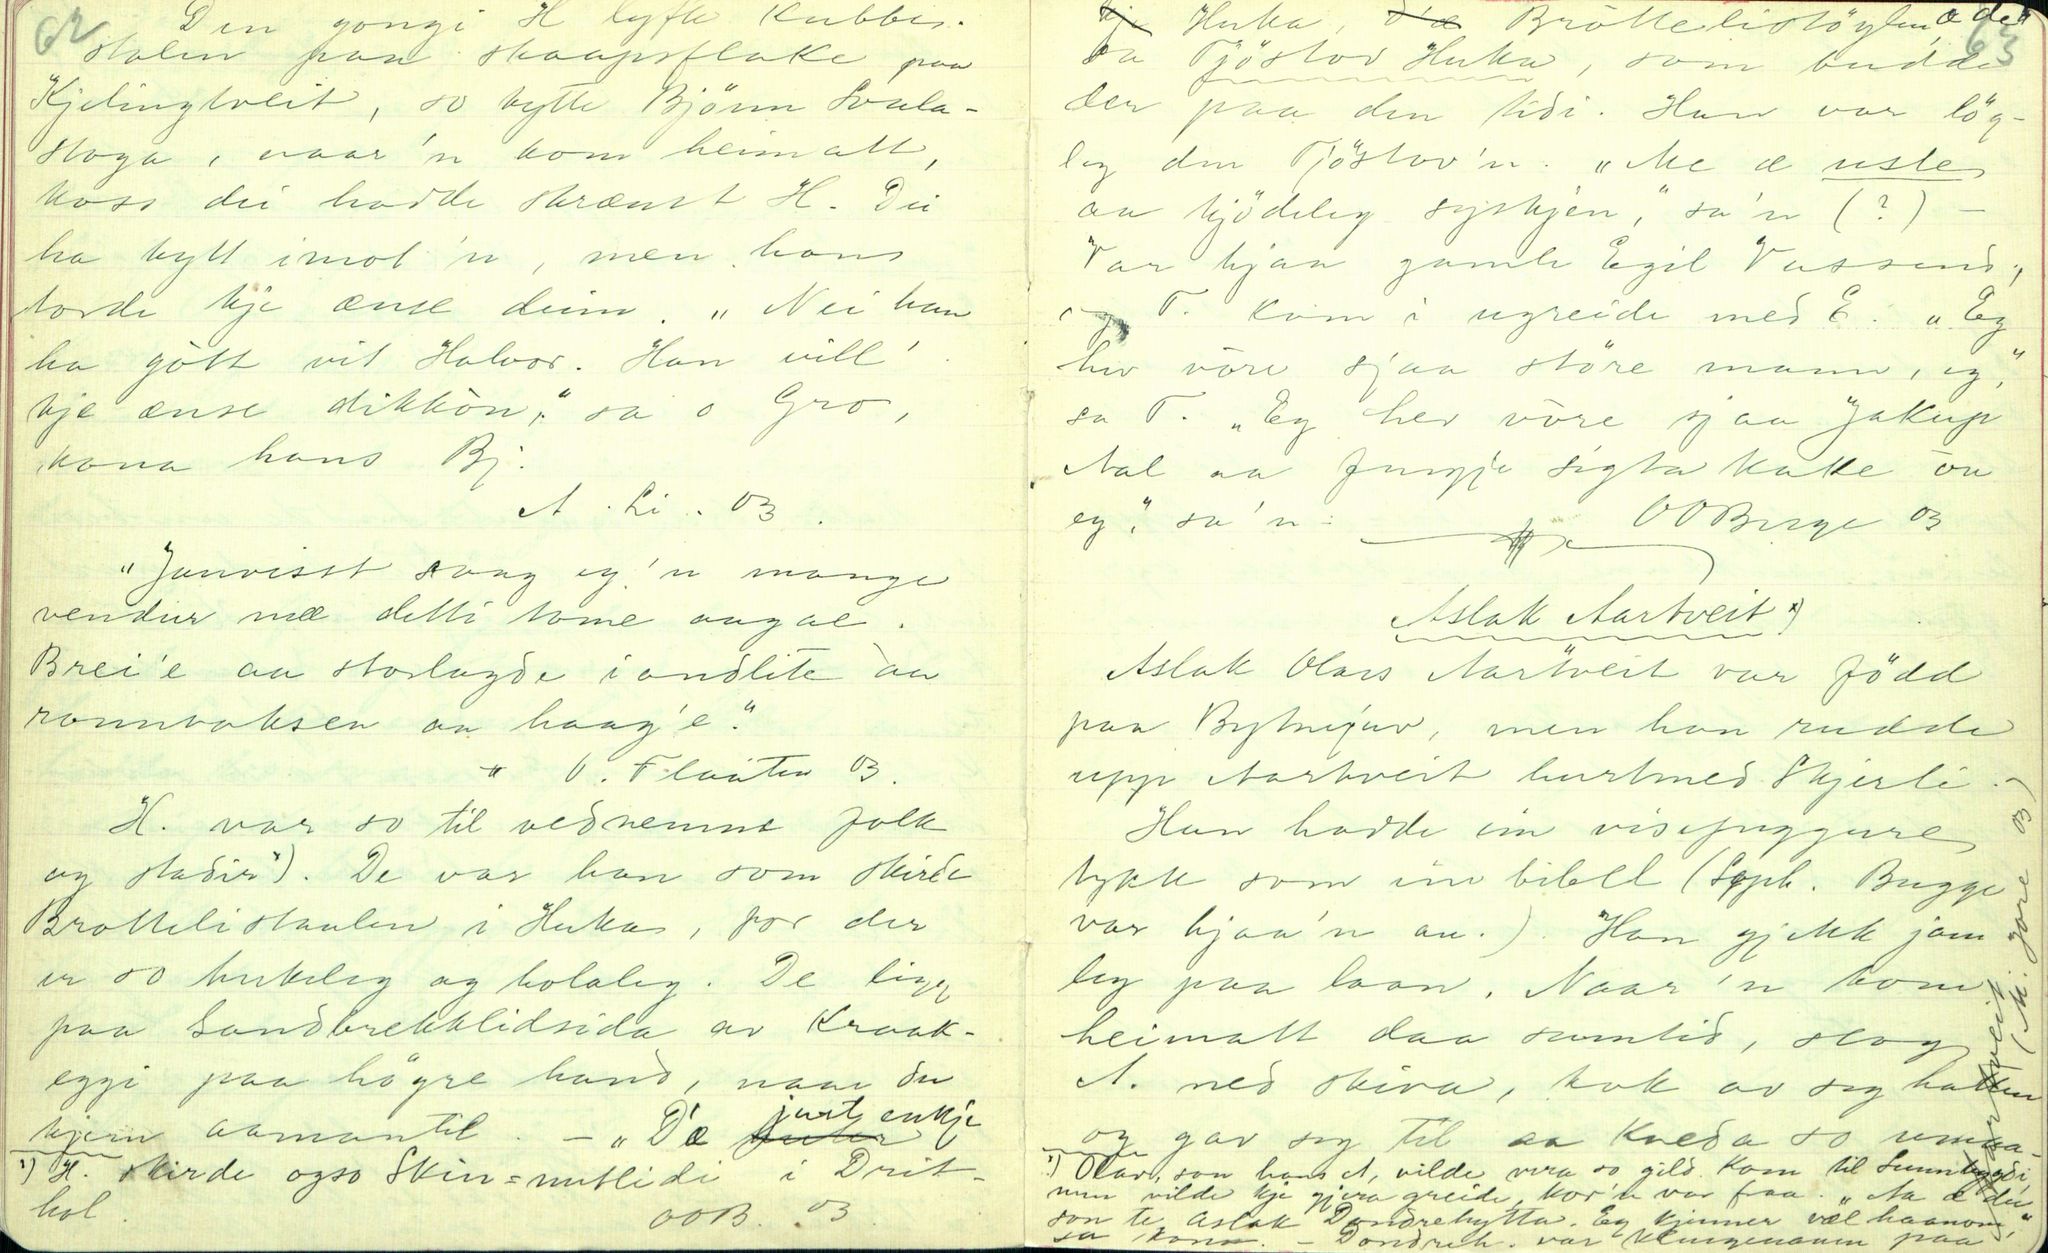 62
Den gongi H lyfte Kubbe-
stolen paa skaapsflake paa
Kjelingtveit, so tytte Björn Svala-
stoga, naar'n kom heimatt,
koss dei hadde skræmt H. Dei
ha tytt imot'n, men hans
torde kje ænse deim. „Nei han
ha gött vit Halvor. Han vill'
kje ænse dikkön," sa o Gro,
kona hans Bj.
A. Li. 03.
„Jauvisst saag eg'n mange
vendur mæ detti tome augae.
Brei'e aa storlagde i andlite aa
rannvaksen aa haag'e."
O. Flaaten 03.
H. var so til vednemne folk
og stadir x). De var han som skirde
Brottelistaulen i Huka, for der
er so hukeleg og holaleg. De ligg
paa Sandbrekklidsida av Kraak-
eggi paa högre hand, naar du
kjem aamantil. – „D'æ just enkje
x) H. skirde ogso Skin=nutlidi i Drit-
hol. OOB. 03
63
kje Huka, d'æ Bröttelistöylen, æ de"
sa Tjöstov Huka, som budde
der paa den tidi. Han var lög-
leg den Tjöstov'n. „Me æ usle
aa kjödeleg syskjen," sa'n (?) –
Var hjaa gamle Egil Vassend,
og T. kom i ugreide med E. „Eg
hev vöre sjaa störe mann, eg,"
sa T. „Eg hev vöre sjaa Jakup
Aal aa fengje sigta kake öu
eg", sa'n. OOBerge 03
Aslak Aartveit x)
Aslak Olavs Aartveit var född
paa Bytnejuv, men han rudde
upp Aartveit burtmed Skjerli.
Han hadde ein visefuggure
tykk som ein bibell (Soph. Bugge
var hjaa'n au.). Han gjekk jam
leg paa laan. Naar'n kom
heimatt daa sumtid, slog
A. ned skiva, tok av seg hatten
og gav seg til aa kveda so
x) Olav, son hans A, vilde vera so gild. Kom til Sunnbygdi,
men vilde kje gjera greide, kor'n var fraa. „Aa æ du
son te Aslak Dondrehytta. Eg kjenner væl haanom,"
sa kona. – Dondreh. var klengenamn paa
Aartveit
(M. Jore 03)